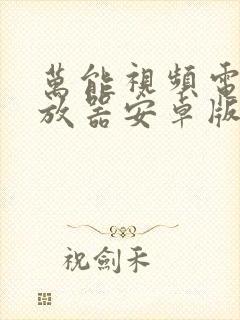 萬能視頻電
放器安卓版
祝劍禾